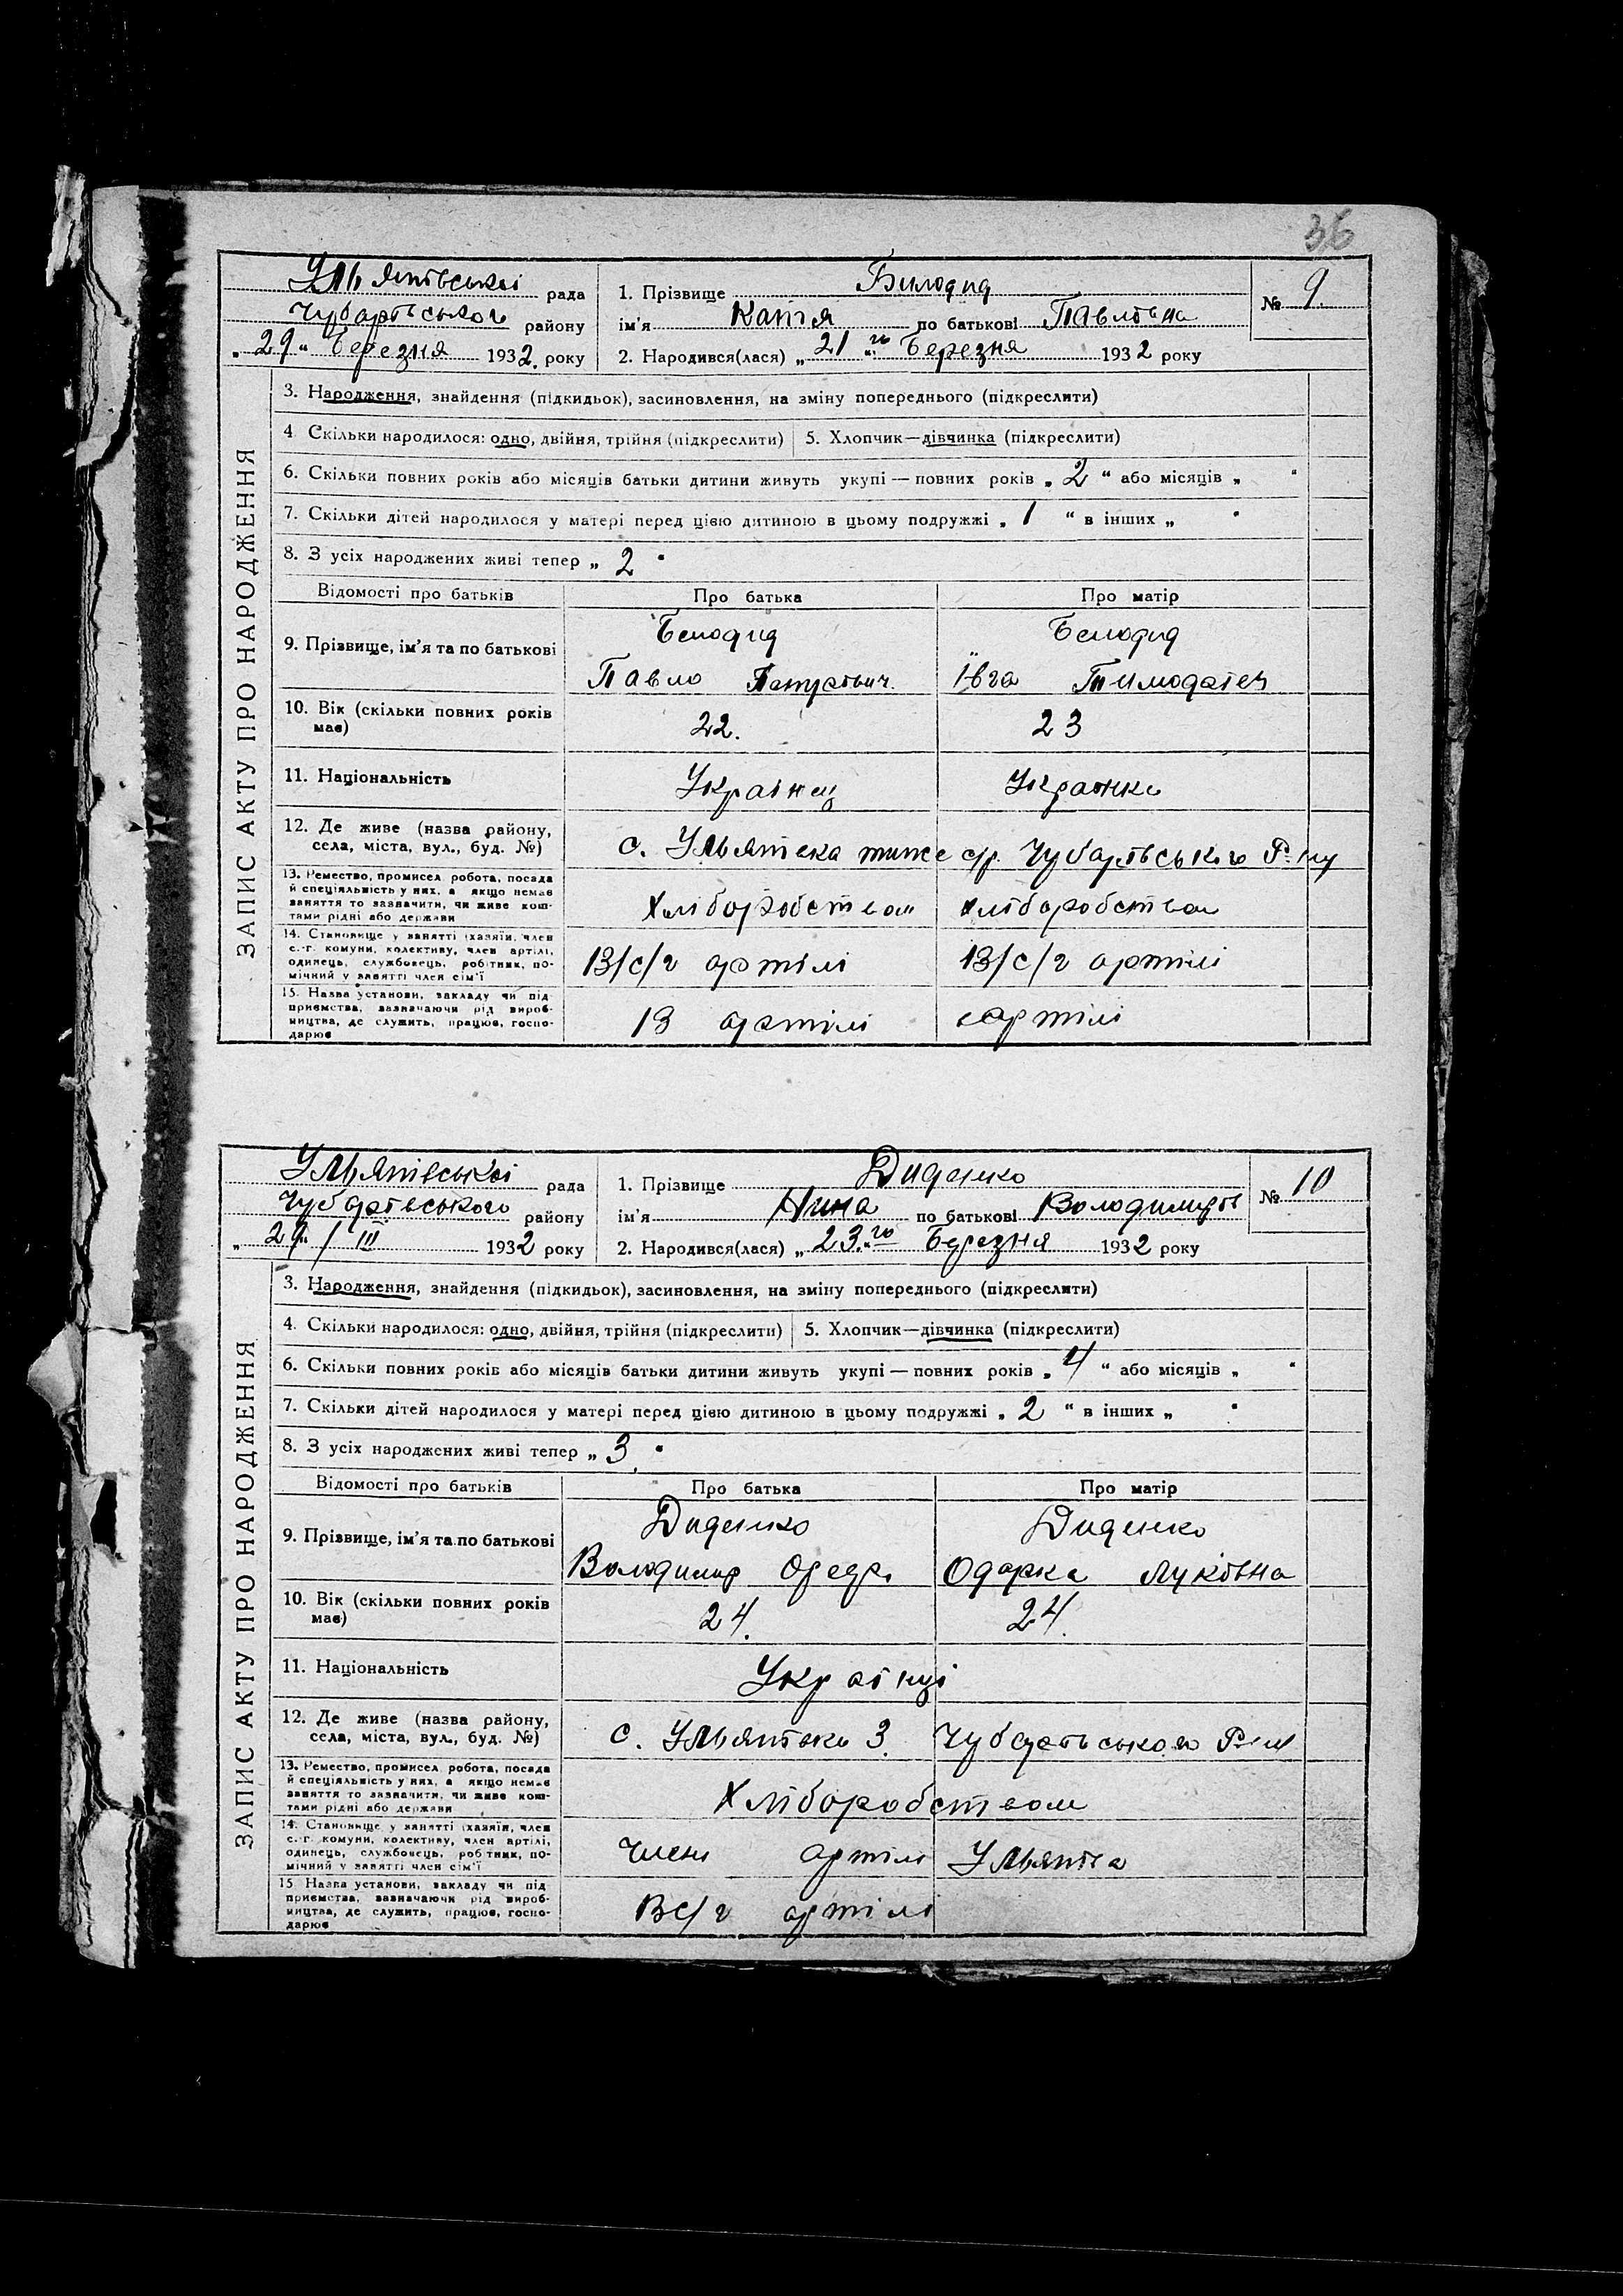 36
Ульянівської рада
Чубарівського району
„29“ Березня 1932. року
1. Прізвище Билодид
ім'я Катя по батькові Павлівна
2. Народився(лася) „21“го Березня 1932 року
№ 9.
ЗАПИС АКТУ ПРО НАРОДЖЕННЯ
3. Народження, знайдення (підкидьок), засиновлення, на зміну попереднього (підкреслити)
4. Скільки народилося: одно, двійня, трійня (підкреслити) 5. Хлопчик—дівчинка (підкреслити)
6. Скільки повних років або місяців батьки дитини живуть укупі — повних років „2“ або місяців „ “
7. Скільки дітей народилося у матері перед цією дитиною в цьому подружжі „1“ в інших „ “
8. З усіх народжених живі тепер „2“
Відомості про батьків Про батька Про матір
9. Прізвище, ім'я та по батькові
Белодид Белодид
Павло Ївга
10. Вік (скільки повних років має) 22. 23
11. Національність Українец
12. Де живе (назва району, села, міста, вул., буд. №)
с. Чубарівського Р-ну
13. Ремество, промисел робота, посада й спеціяльність у них, а якщо немає заняття то зазначити, чи живе коштами рідні або держави
Хліборобством хліборобством
14. Становище у занятті (хазяїн, член с.-г. комуни, колективу, член артілі, одинець, службовець, робітник, помічний у занятті член сім'ї
В/с/г артілі В/с/г артілі
15. Назва установи, закладу чи підприємства, зазначаючи рід виробництва, де служить, працює, господарює
В артілі артілі
Ульянівської рада
Чубарівського району
„29“/III 1932 року
1. Прізвище Диденко
ім'я Нина по батькові Володимирів
2. Народився(лася) „23.“го Березня 1932 року
№ 10
ЗАПИС АКТУ ПРО НАРОДЖЕННЯ
3. Народження, знайдення (підкидьок), засиновлення, на зміну попереднього (підкреслити)
4. Скільки народилося: одно, двійня, трійня (підкреслити) 5. Хлопчик—дівчинка (підкреслити)
6. Скільки повних років або місяців батьки дитини живуть укупі — повних років „4“ або місяців „ “
7. Скільки дітей народилося у матері перед цією дитиною в цьому подружжі „2“ в інших „ “
8. З усіх народжених живі тепер „3“
Відомості про батьків Про батька Про матір
9. Прізвище, ім'я та по батькові
Диденко Диденко
Володимир Одарка Луківна
10. Вік (скільки повних років має) 24. 24.
11. Національність Українці
12. Де живе (назва району, села, міста, вул., буд. №)
с. Ульянівка 3. Чубарівського Р-ну
13. Ремество, промисел робота, посада й спеціяльність у них, а якщо немає заняття то зазначити, чи живе коштами рідні або держави
Хліборобством
14. Становище у занятті (хазяїн, член с.-г. комуни, колективу, член артілі, одинець, службовець, робітник, помічний у занятті член сім'ї
Члени артілі
15. Назва установи, закладу чи підприємства, зазначаючи рід виробництва, де служить, працює, господарює
В с/г артілі